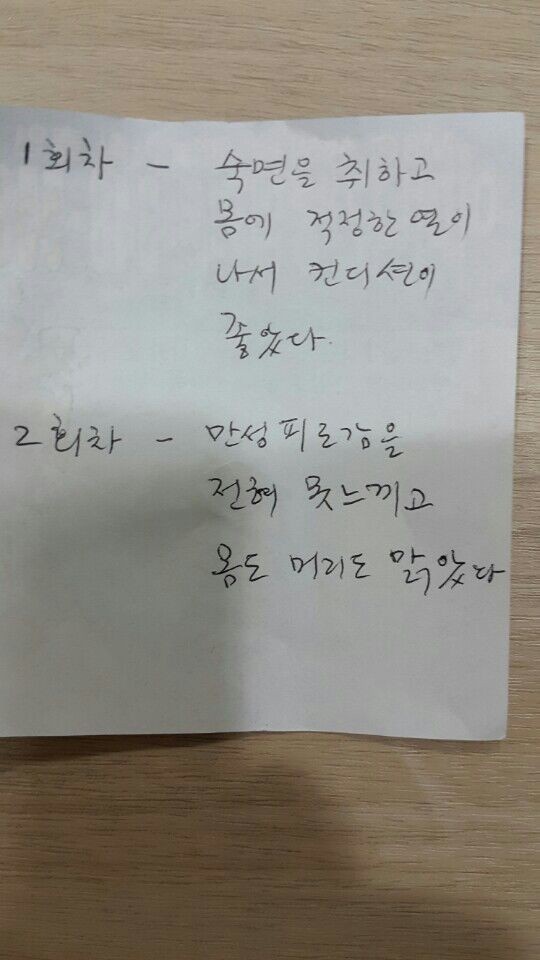 1회차 - 숙면을 취하고
몸에 적정한 열이
나서 컨디션이
좋았다.
2회차 - 만성피로감을
전혀 못느끼고
몸도 머리도 맑았다